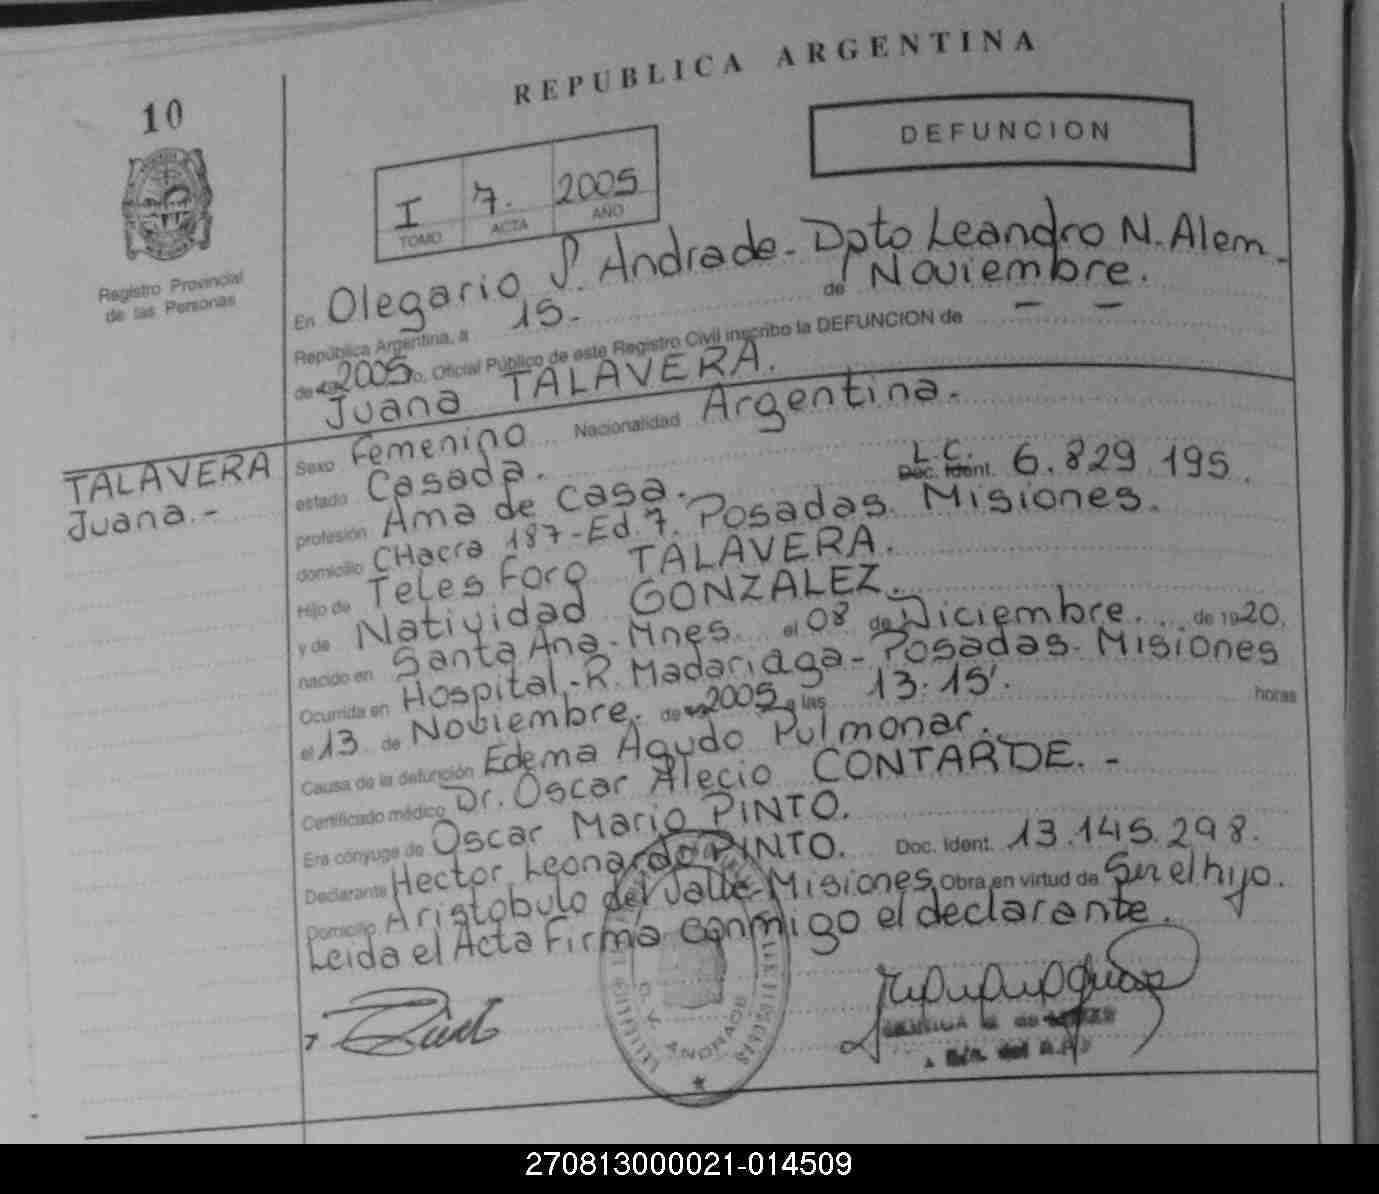 REPUBLICA ARGENTINA
10
DEFUNCION
I 7. 2005
TOMO ACTA AÑO
Registro Provincial
de las Personas
En Olegario V. Andrade - Dpto Leandro N. Alem.
República Argentina, a 15.- de Noviembre.
de 2005 o, Oficial Público de este Registro Civil inscribo la DEFUNCION de — —
Juana TALAVERA.
TALAVERA
Juana.-
Sexo Femenino Nacionalidad Argentina.
estado Casada. L.C. Doc. Ident. 6.829.195.
profesión Ama de casa.
domicilio CHacra 187-Ed.7. Posadas. Misiones.
Hijo de Telesforo TALAVERA.
y de Natividad GONZALEZ.
nacido en Santa Ana - Mnes. el 08 de Diciembre. de 1920.
Ocurrida en Hospital.-R. Madariaga - Posadas. Misiones
el 13 de Noviembre. de 2005 a las 13:15'. horas
Causa de la defunción Edema Agudo Pulmonar.
Certificado médico Dr. Oscar Alecio CONTARDE. -
Era cónyuge de Oscar Mario PINTO.
Declarante Hector Leonardo PINTO. Doc. Ident. 13.145.298.
Domicilio Aristobulo del Valle-Misiones Obra en virtud de Ser el hijo.
Leida el Acta Firma conmigo el declarante.
O. V. ANDRADE
270813000021-014509